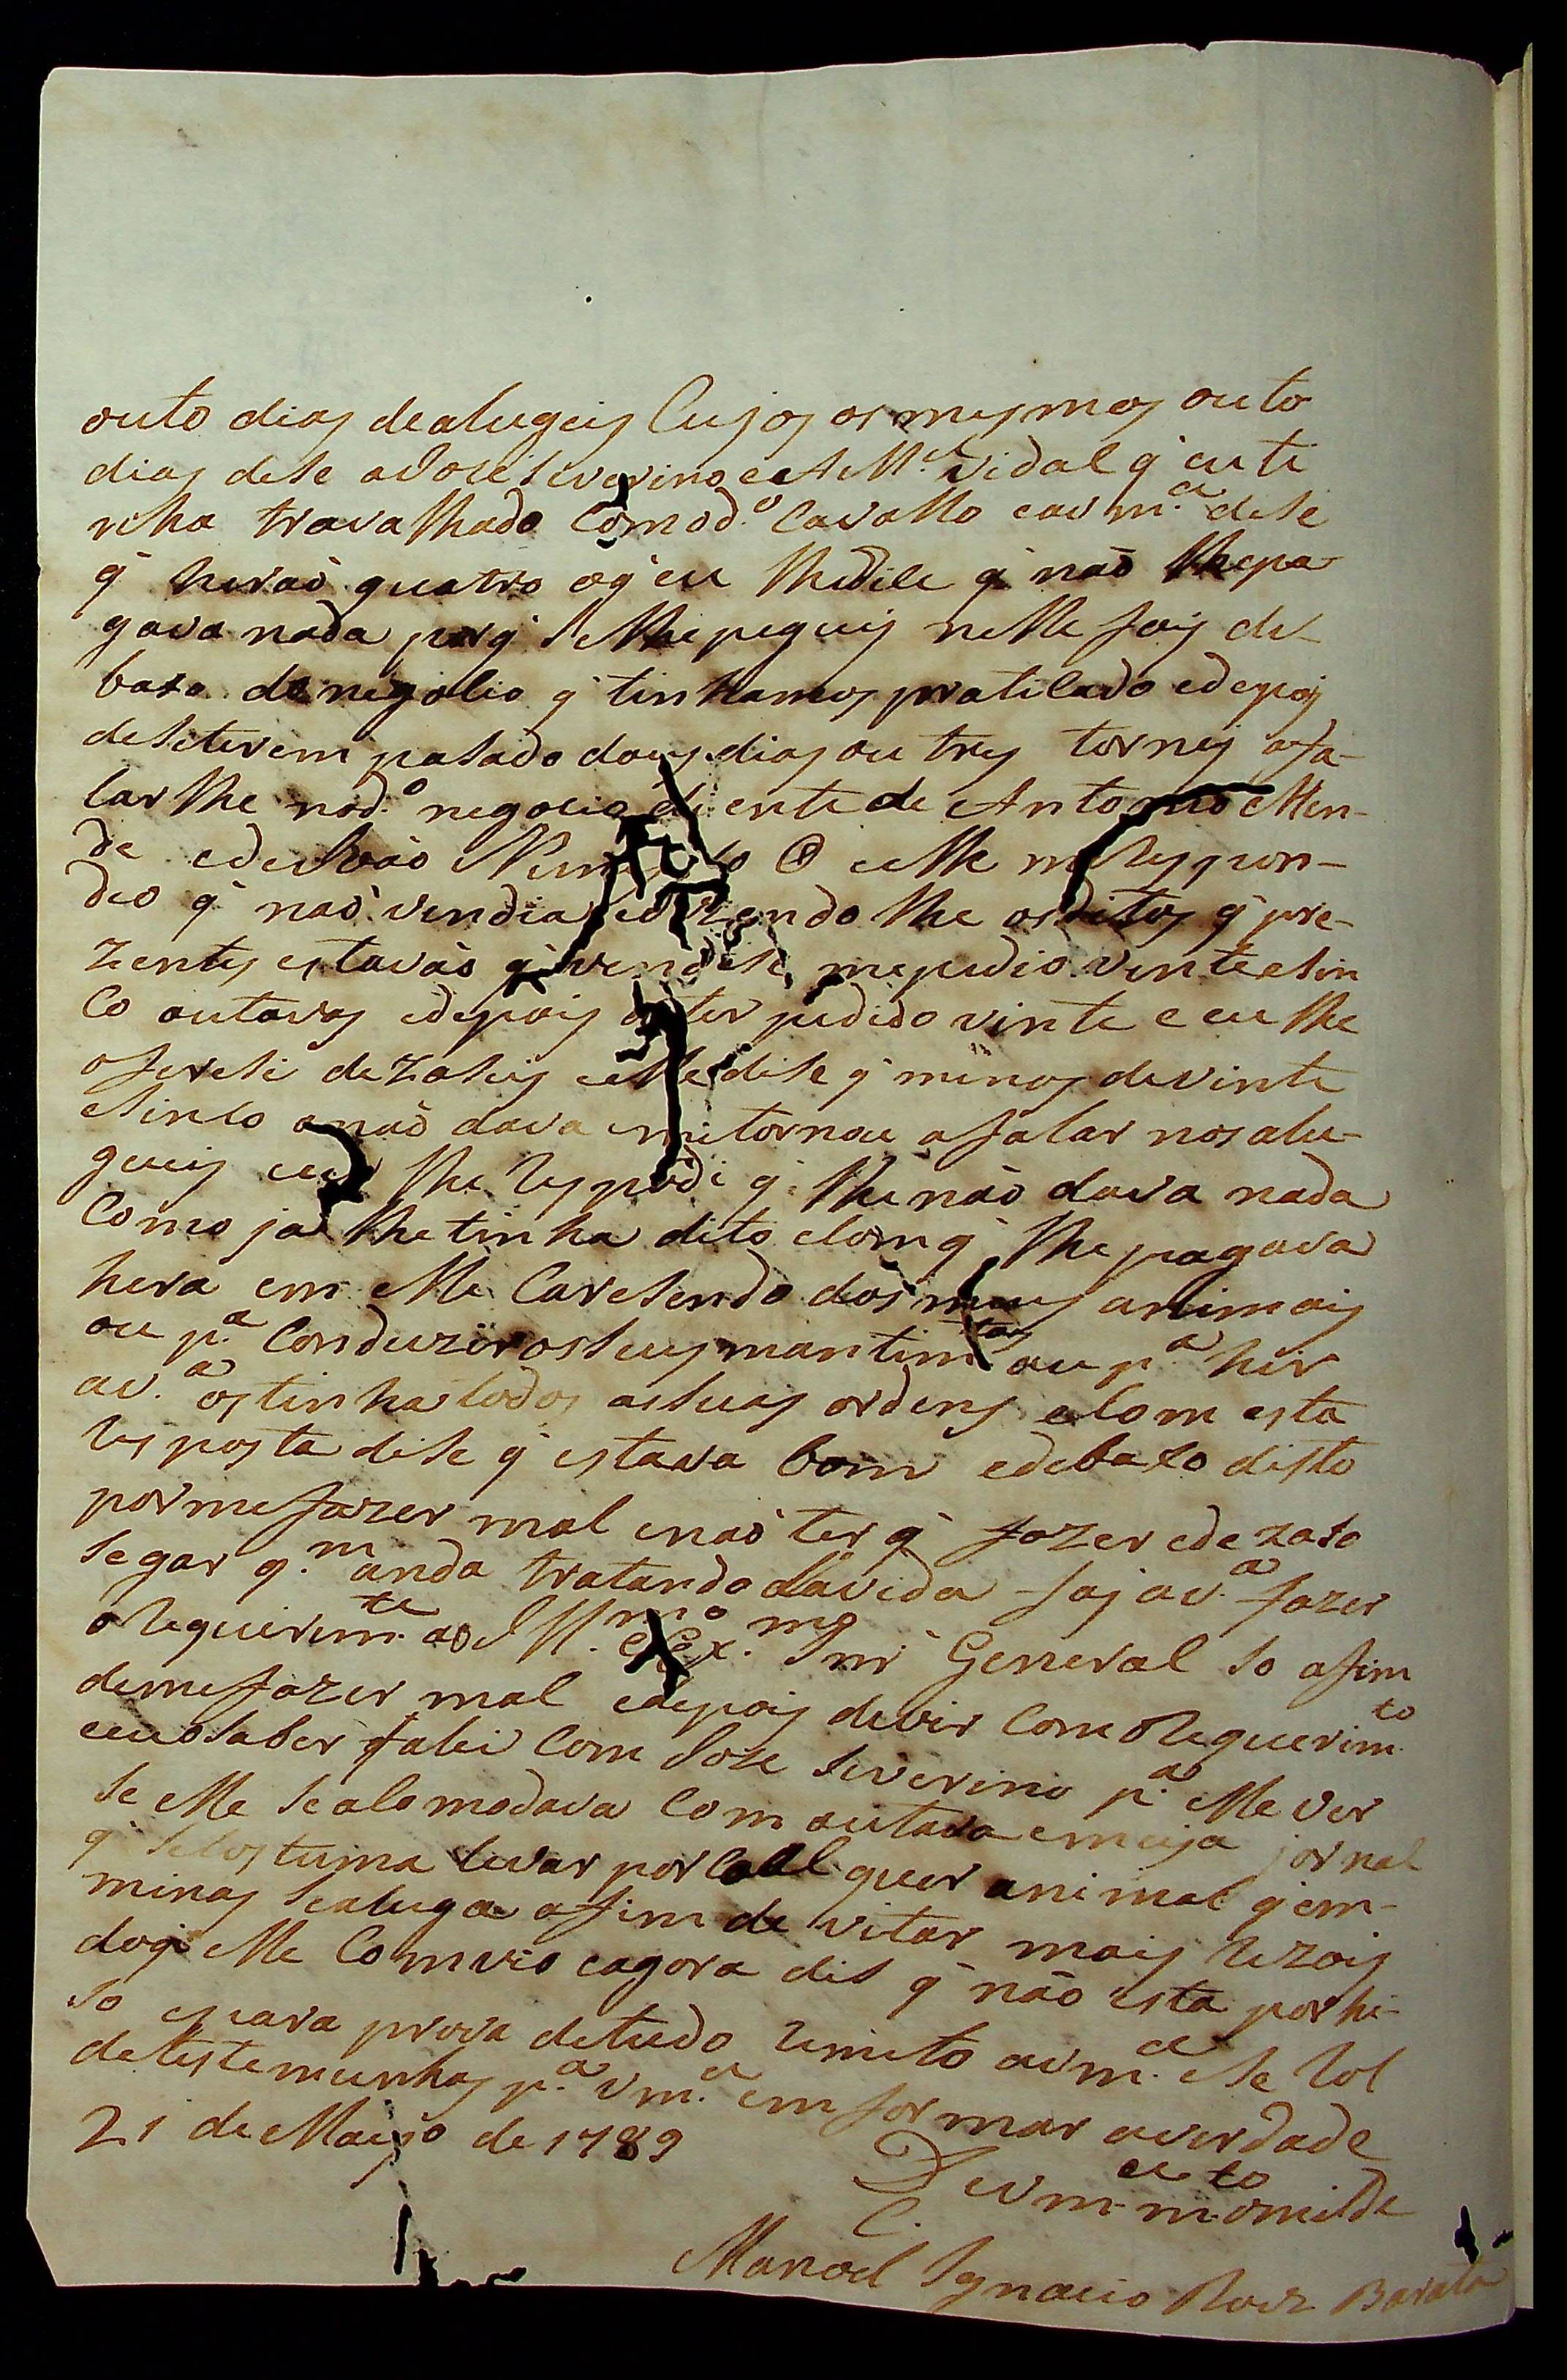 outo dias dealugeis Cujos os mesmos outo
dias dise aJoze Siverino eA M.el Vidal q̃ eu ti
nha travalhado Comod.o Cavallo eavm.ce dise
q̃ heraõ quatro oq̃ eu lhedise q̃ naõ lhepa
gava nada porq̃ selhe peguis nelle fois de
baxo de negosio q̃ tinhamos praticado edepois
deseterem pasado dous dias ou tres tornej afa-
larlhe nod.o negocio diente de Antonio Men-
de eole me respon-
deo q̃ naõ vendia edizendolhe osditos q̃ pre-
zentes estavaõ q̃ vendese mepedio vinte esin
Co outavas edepois de ter pedido vinte e eu lhe
oferesi dezaseis elle dise q̃ menos devinte
esinco onaõ dava emetornou afalar nos alu-
gueis lhe respodi q̃ lhe naõ dava nada
Como ja lhe tinha dito eComq̃ lhe pagava
hera em elle Caresendo dos meus animais
ou p.a Conduzir osseus mantim.tos ou p.a hir
av.a os tinha todos asuas ordens eCom esta
resposta dise q̃ estava bom edebaxo disto
por mefazer mal enaõ ter q̃ fazer edezaso
segar q.m anda tratando davida foj av.a fazer
orequerim.te ao Ill.mo e Ex.mo Snr̃ General so afim
demefazer mal edepois devir Com orequerim.to
eeuosaber falei Com Joze Siverino p.a elle ver
se elle seacomodava Com outava emeija jornal
q̃ seCostuma levar por Coal quer animal q̃ em-
minas sealuga afim de vitar mais rezois
doq̃ elle Comvio eagora dis q̃ não esta por hi-
so epara prova detudo remeto avm.ce ese rol
detestemunhas p.a vm.ce emformar averdade
21 de Maijo de 1789
De vm.ce m.to omilde
C.
Manoel Ignacio Roiz Barata